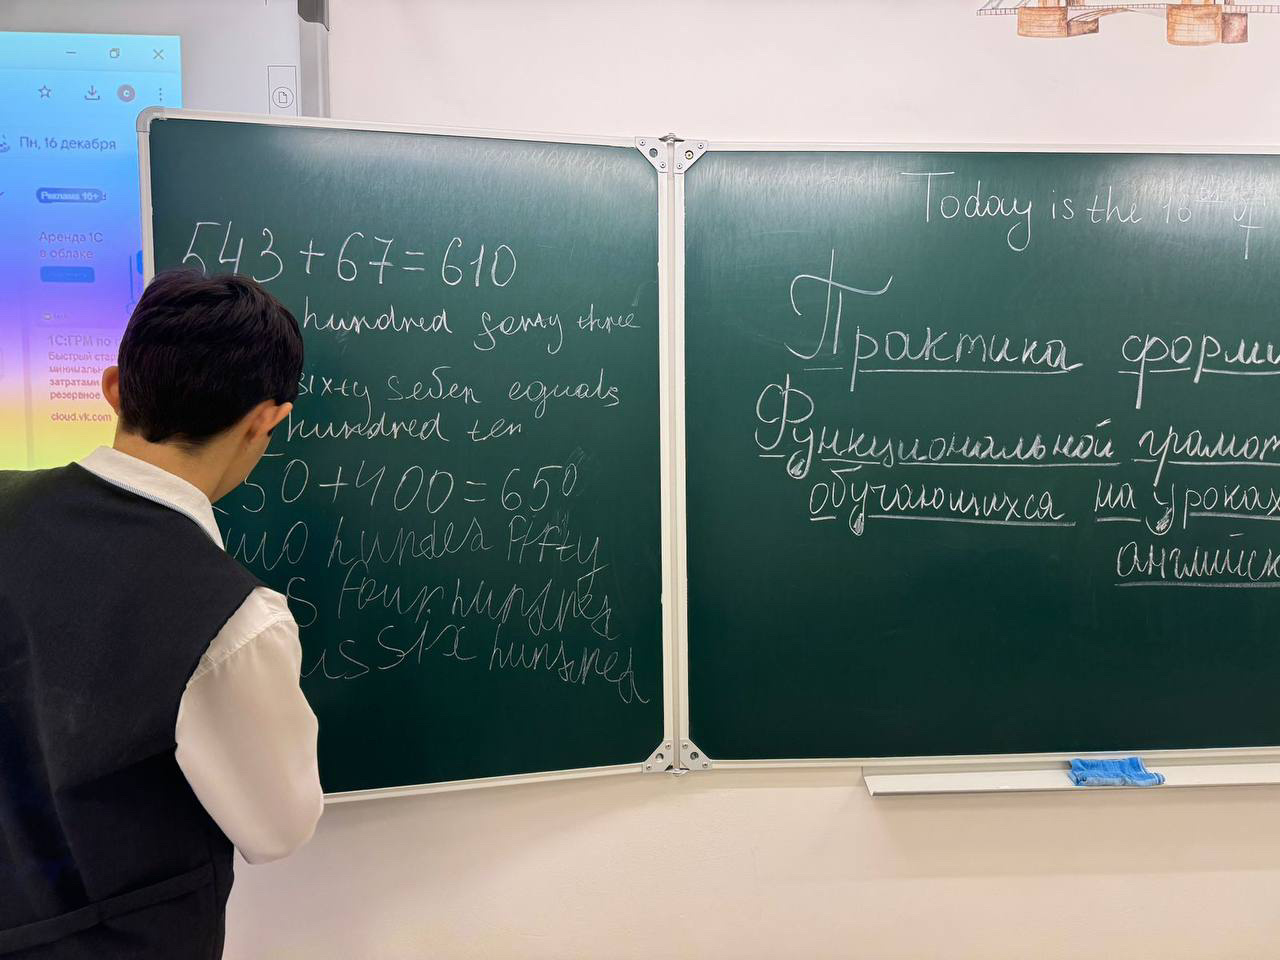 Пн, 16 декабря
Реклама 16+
Аренда 1С
в облаке
1С:ГРМ по
быстрый стар
минималь
затратами
резервное
cloud.vk.com
543+67=610
hundred forty three
sixty seven equals
hundred ten
50+400=650
two hundred fifty
s four hundred
us six hundred
Today is the 16
Практика форми
Функциональной грамот
обучающихся на уроках
английск